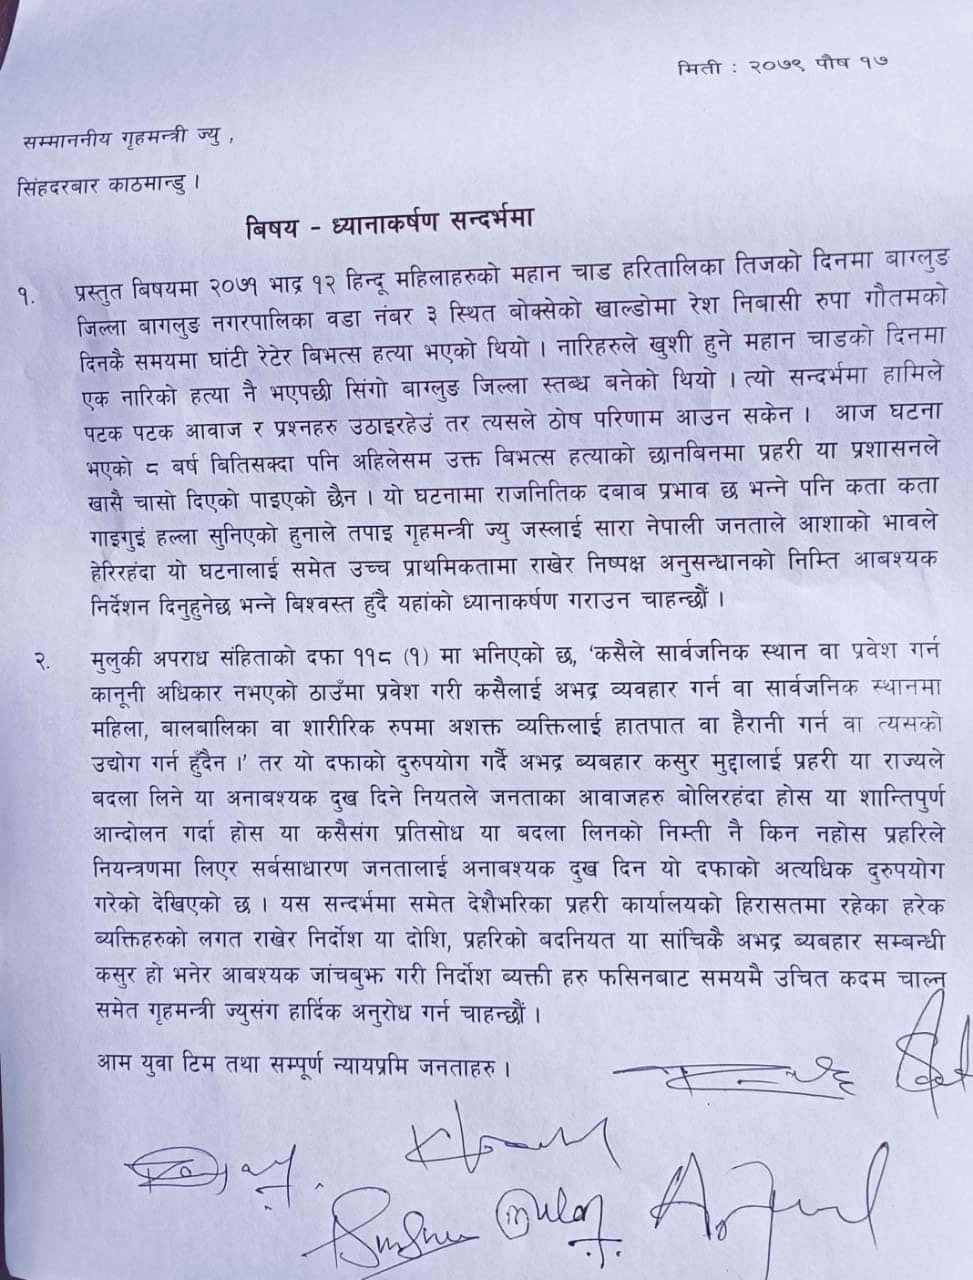 मिती : २०७९ पौष १७
सम्माननीय गृहमन्त्री ज्यु ,
सिंहदरबार काठमान्डु ।
बिषय - ध्यानाकर्षण सन्दर्भमा
१. प्रस्तुत बिषयमा २०७१ भाद्र १२ हिन्दू महिलाहरुको महान चाड हरितालिका तिजको दिनमा बाग्लुङ
जिल्ला बागलुङ नगरपालिका वडा नंबर ३ स्थित बोक्सेको खाल्डोमा रेश निबासी रुपा गौतमको
दिनकै समयमा घांटी रेटेर बिभत्स हत्या भएको थियो । नारिहरुले खुशी हुने महान चाडको दिनमा
एक नारिको हत्या नै भएपछी सिंगो बाग्लुङ जिल्ला स्तब्ध बनेको थियो । त्यो सन्दर्भमा हामिले
पटक पटक आवाज र प्रश्नहरु उठाइरहेउं तर त्यसले ठोष परिणाम आउन सकेन । आज घटना
भएको ८ बर्ष बितिसक्दा पनि अहिलेसम उक्त बिभत्स हत्याको छानबिनमा प्रहरी या प्रशासनले
खासै चासो दिएको पाइएको छैन । यो घटनामा राजनितिक दबाब प्रभाव छ भन्ने पनि कता कता
गाइगुइं हल्ला सुनिएको हुनाले तपाइ गृहमन्त्री ज्यु जस्लाई सारा नेपाली जनताले आशाको भावले
हेरिरहंदा यो घटनालाई समेत उच्च प्राथमिकतामा राखेर निष्पक्ष अनुसन्धानको निम्ति आबश्यक
निर्देशन दिनुहुनेछ भन्ने बिश्वस्त हुंदै यहांको ध्यानाकर्षण गराउन चाहन्छौं ।
२. मुलुकी अपराध संहिताको दफा ११८ (१) मा भनिएको छ, ‘कसैले सार्वजनिक स्थान वा प्रवेश गर्न
कानूनी अधिकार नभएको ठाउँमा प्रवेश गरी कसैलाई अभद्र व्यवहार गर्न वा सार्वजनिक स्थानमा
महिला, बालबालिका वा शारीरिक रुपमा अशक्त व्यक्तिलाई हातपात वा हैरानी गर्न वा त्यसको
उद्योग गर्न हुँदैन ।’ तर यो दफाको दुरुपयोग गर्दै अभद्र ब्यबहार कसुर मुद्दालाई प्रहरी या राज्यले
बदला लिने या अनाबश्यक दुख दिने नियतले जनताका आवाजहरु बोलिरहंदा होस या शान्तिपुर्ण
आन्दोलन गर्दा होस या कसैसंग प्रतिसोध या बदला लिनको निम्ती नै किन नहोस प्रहरिले
नियन्त्रणमा लिएर सर्बसाधारण जनतालाई अनाबश्यक दुख दिन यो दफाको अत्यधिक दुरुपयोग
गरेको देखिएको छ । यस सन्दर्भमा समेत देशैभरिका प्रहरी कार्यालयको हिरासतमा रहेका हरेक
ब्यक्तिहरुको लगत राखेर निर्दोश या दोशि, प्रहरिको बदनियत या सांचिकै अभद्र ब्यबहार सम्बन्धी
कसुर हो भनेर आबश्यक जांचबुझ गरी निर्दोश ब्यक्ती हरु फसिनबाट समयमै उचित कदम चाल्न
समेत गृहमन्त्री ज्युसंग हार्दिक अनुरोध गर्न चाहन्छौं ।
आम युवा टिम तथा सम्पूर्ण न्यायप्रमि जनताहरु ।